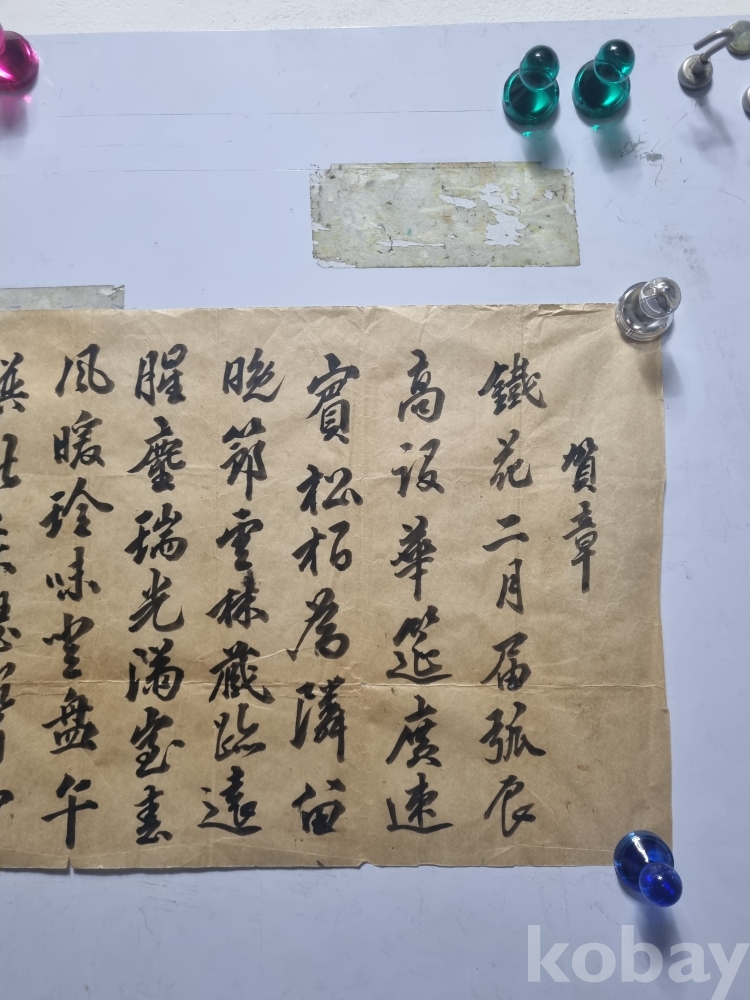 賀章
鐵花二月届弧辰
高設華筵廣速
賓松栢為隣留
晚節雲林藏跡遠
腥塵瑞光滿室春
風暖珍味登盤午
kobay